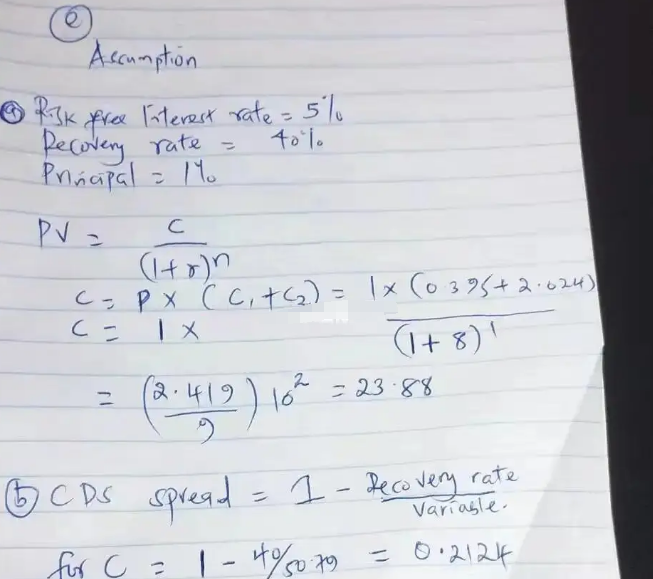 e
Assumption
a Risk free Interest rate = 5%
Recovery rate = 40%
Principal = 1%
PV = C / (1+r)^n
C = P x (C1 + C2) = 1 x (0.395 + 2.024) / (1+8)^1
C = 1 x
= (2.419 / 9) 10^2 = 23.88
b CDS spread = 1 - Recovery rate / Variable.
for C = 1 - 40/50.79 = 0.2124